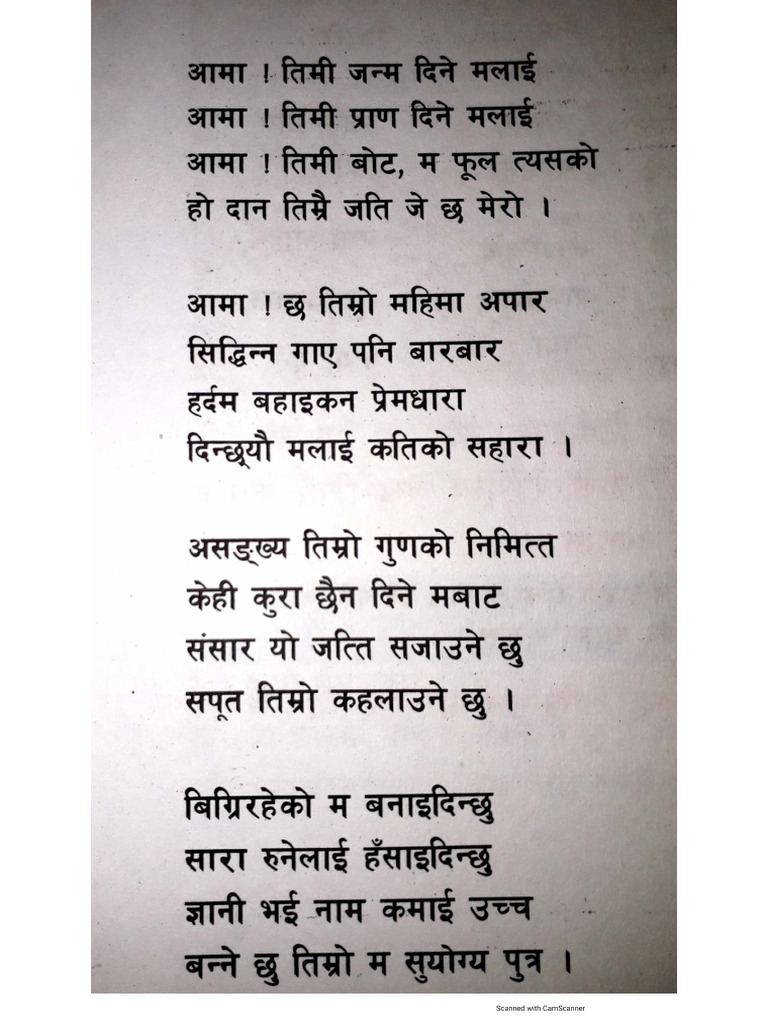 आमा ! तिमी जन्म दिने मलाई
आमा ! तिमी प्राण दिने मलाई
आमा ! तिमी बोट, म फूल त्यसको
हो दान तिम्रै जति जे छ मेरो ।
आमा ! छ तिम्रो महिमा अपार
सिद्धिन्न गाए पनि बारबार
हर्दम बहाइकन प्रेमधारा
दिन्छ्यौ मलाई कतिको सहारा ।
असङ्ख्य तिम्रो गुणको निमित्त
केही कुरा छैन दिने मबाट
संसार यो जत्ति सजाउने छु
सपूत तिम्रो कहलाउने छु ।
बिग्रिरहेको म बनाइदिन्छु
सारा रुनेलाई हँसाइदिन्छु
ज्ञानी भई नाम कमाई उच्च
बन्ने छु तिम्रो म सुयोग्य पुत्र ।
Scanned with CamScanner